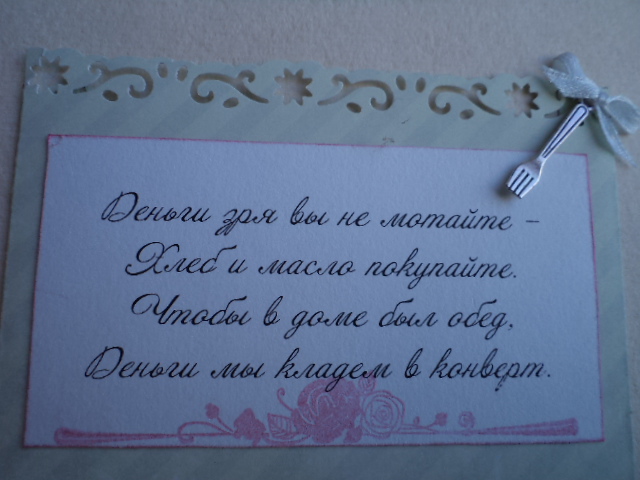 Деньги зря вы не мотайте –
Хлеб и масло покупайте.
Чтобы в доме был обед,
Деньги мы кладем в конверт.